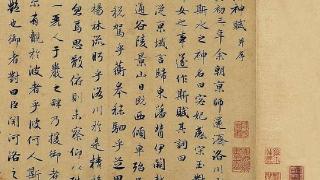 神賦 并序
初三年余朝京師還濟洛川
斯水之神名曰宓妃感宋玉對
女之事遂作斯賦其詞曰
從京域言歸東藩背伊闕
通谷陵景山日既西傾車殆
税駕乎蘅皋秣駟乎芝
楊林流眄乎洛川於是精移
忽焉思散俯則未察仰以
一麗人于巖之畔乃援御者
有覿於彼者乎彼何人斯
也御者對曰臣聞河洛之